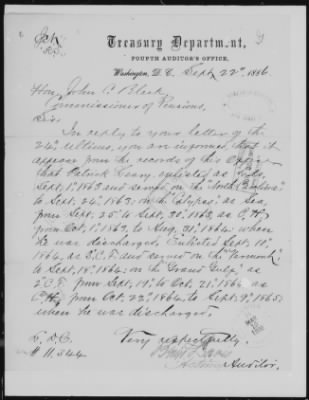 Treasury Department,
FOURTH AUDITOR'S OFFICE,
Washington, D. C. Sept. 22nd, 1886
Hon. John C. Black
Commissioner of Pensions,
Sir:
In reply to your letter of the
24th. Ultimo, you are informed, that it
appears from the records of this Office
that Patrick Leary, enlisted as Lds.
Sept. 1st 1863 and served on the "North Carolina"
to Sept. 24th 1863; on the "Calypso" as Sea.
from Sept. 25th to Sept. 30th 1863, as C. H.
from Oct. 1st 1863, to Aug. 31st 1864: when
he was discharged. Enlisted Sept. 10th
1864, as 2. C. F. and served on the "Vermont",
to Sept. 18th 1864: on the "Grand Gulf," as
2. C. F. from Sept. 19th to Oct. 21st 1864 as
C. H. from Oct. 22d 1864, to Sept. 9th 1865:
when he was discharged.
Very respectfully.
# 11,344
Acting Auditor.